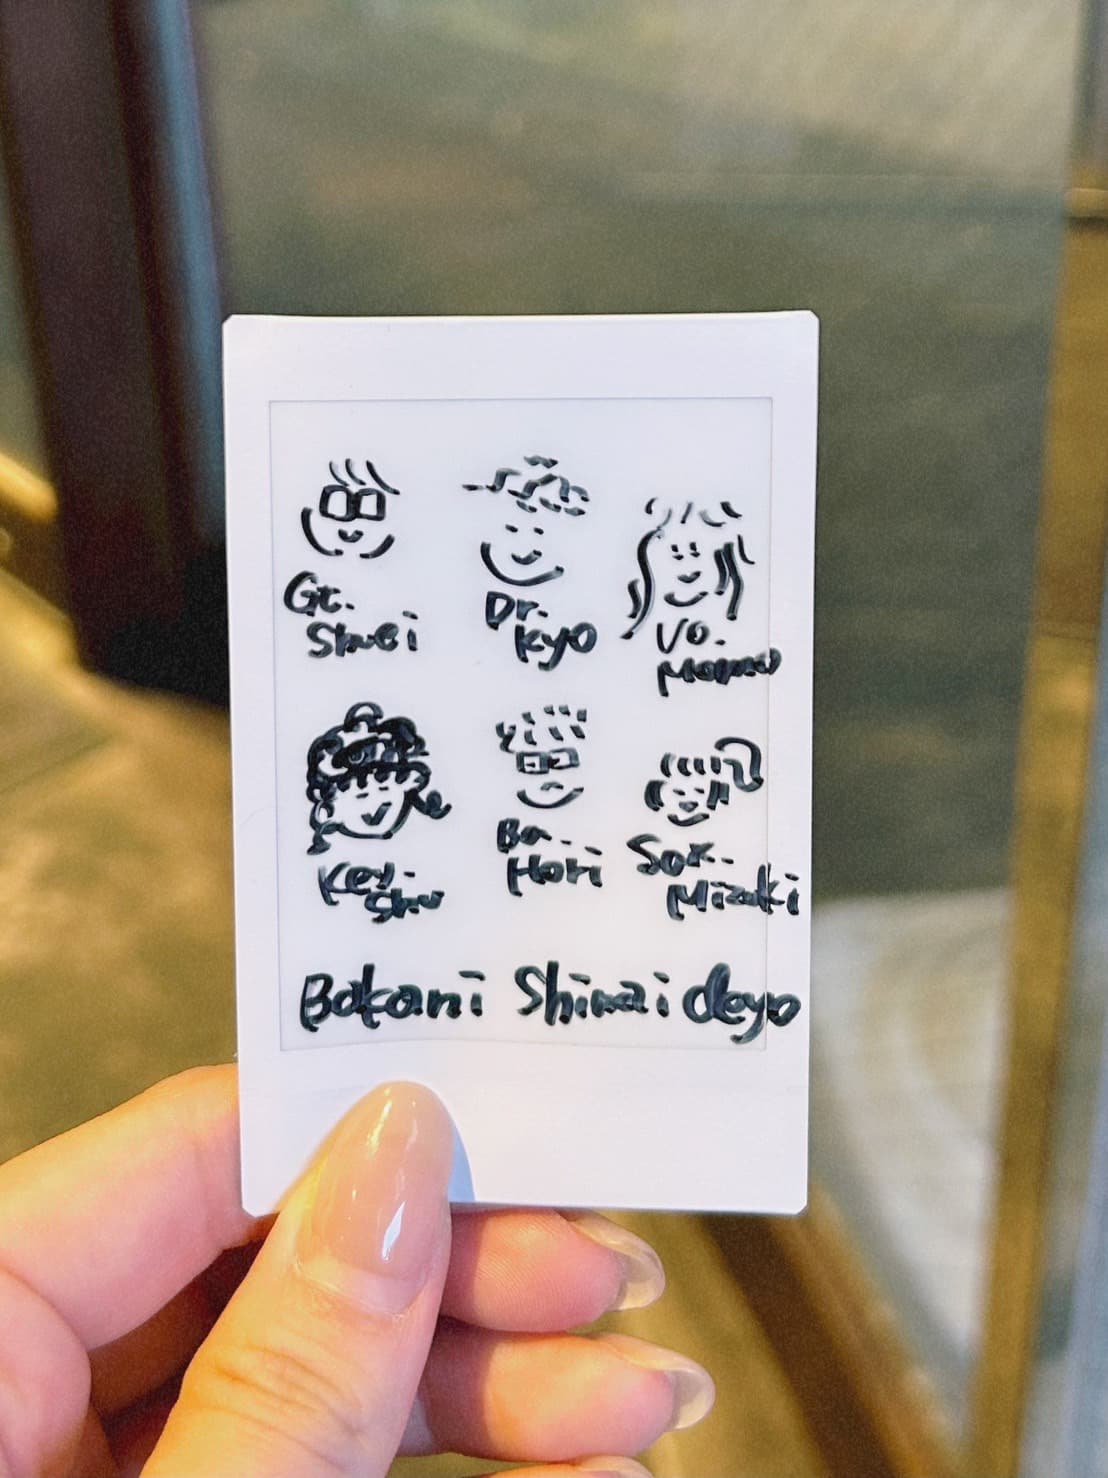 Gt.
Shuei
Dr.
Kyo
Vo.
Momno
Key.
Shu
Ba.
Hori
Sax.
Mizuki
Bakani Shinai deyo